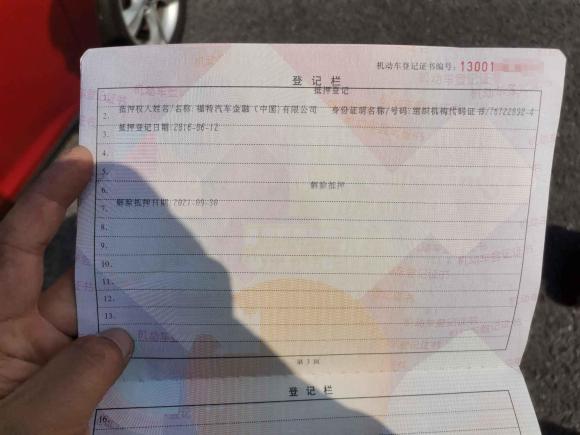 机动车登记证书编号: 13001
登记栏
1. 抵押登记
2. 抵押权人姓名/名称:福特汽车金融(中国)有限公司 身份证明名称/号码:组织机构代码证书/76722892-4
3. 抵押登记日期:2016-06-12
4.
5.
6. 解除抵押
7. 解除抵押日期:2021-09-30
8.
9.
10.
11.
12.
13.
第 3 页
登记栏
16.